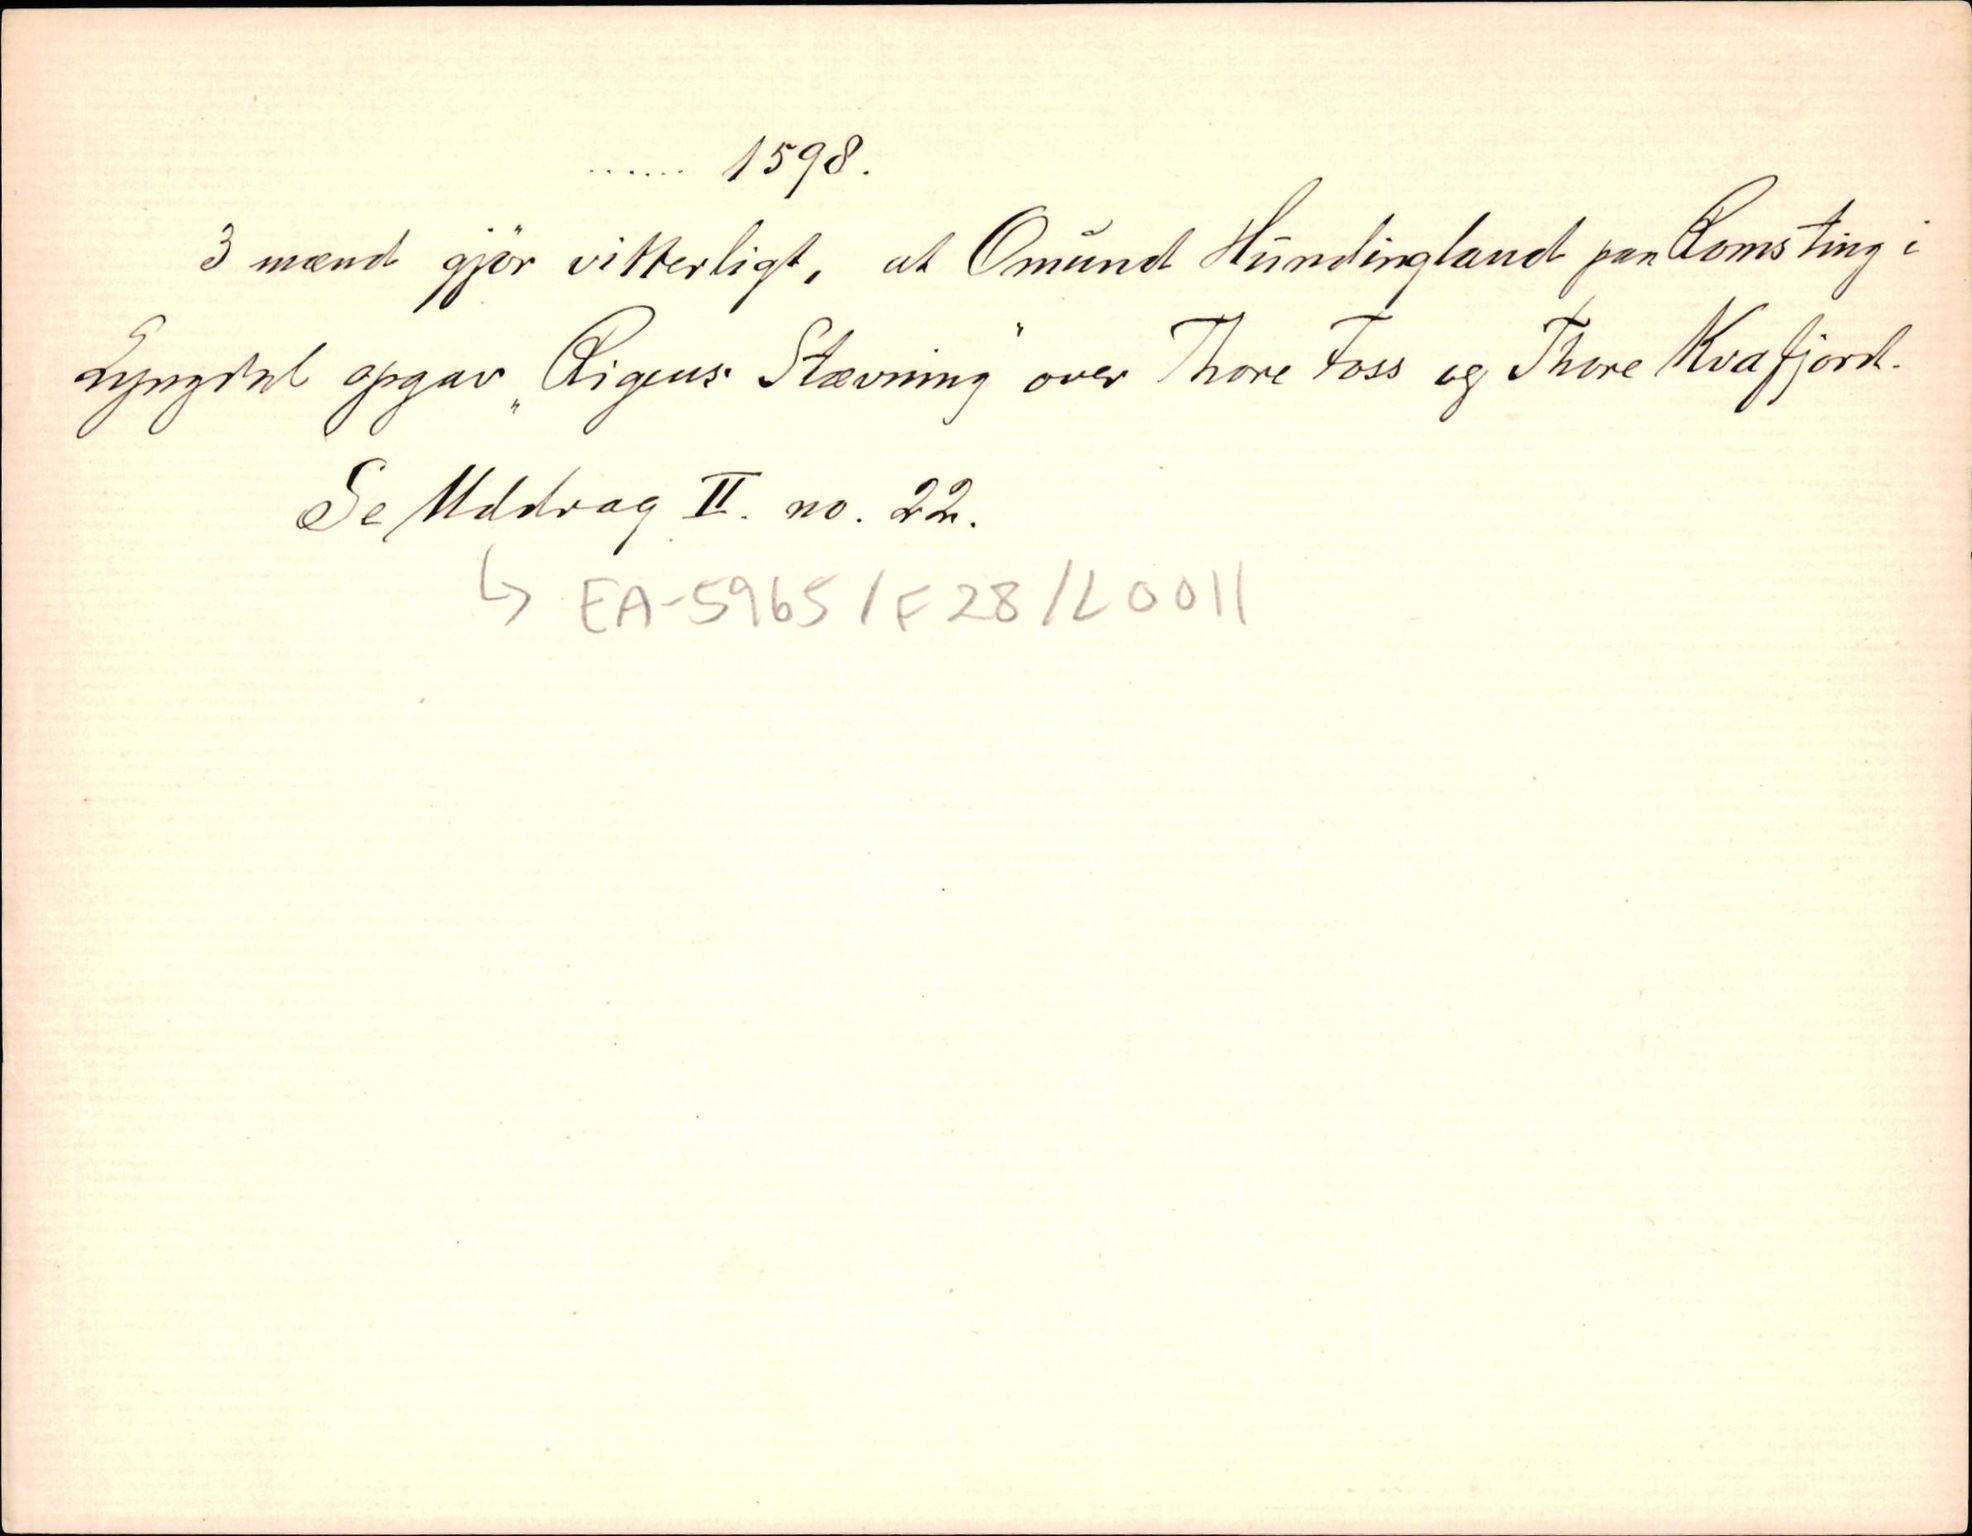 ...... 1598.
3 mænd gjör vitterligt, at Omund Hundingland paa Roms ting i
Lyngdal opgav „Rigens Stævning" over Thore Foss og Thore Kvafjord.
Se Uddrag II. no. 22.
↳ EA-5965/F28/L0011